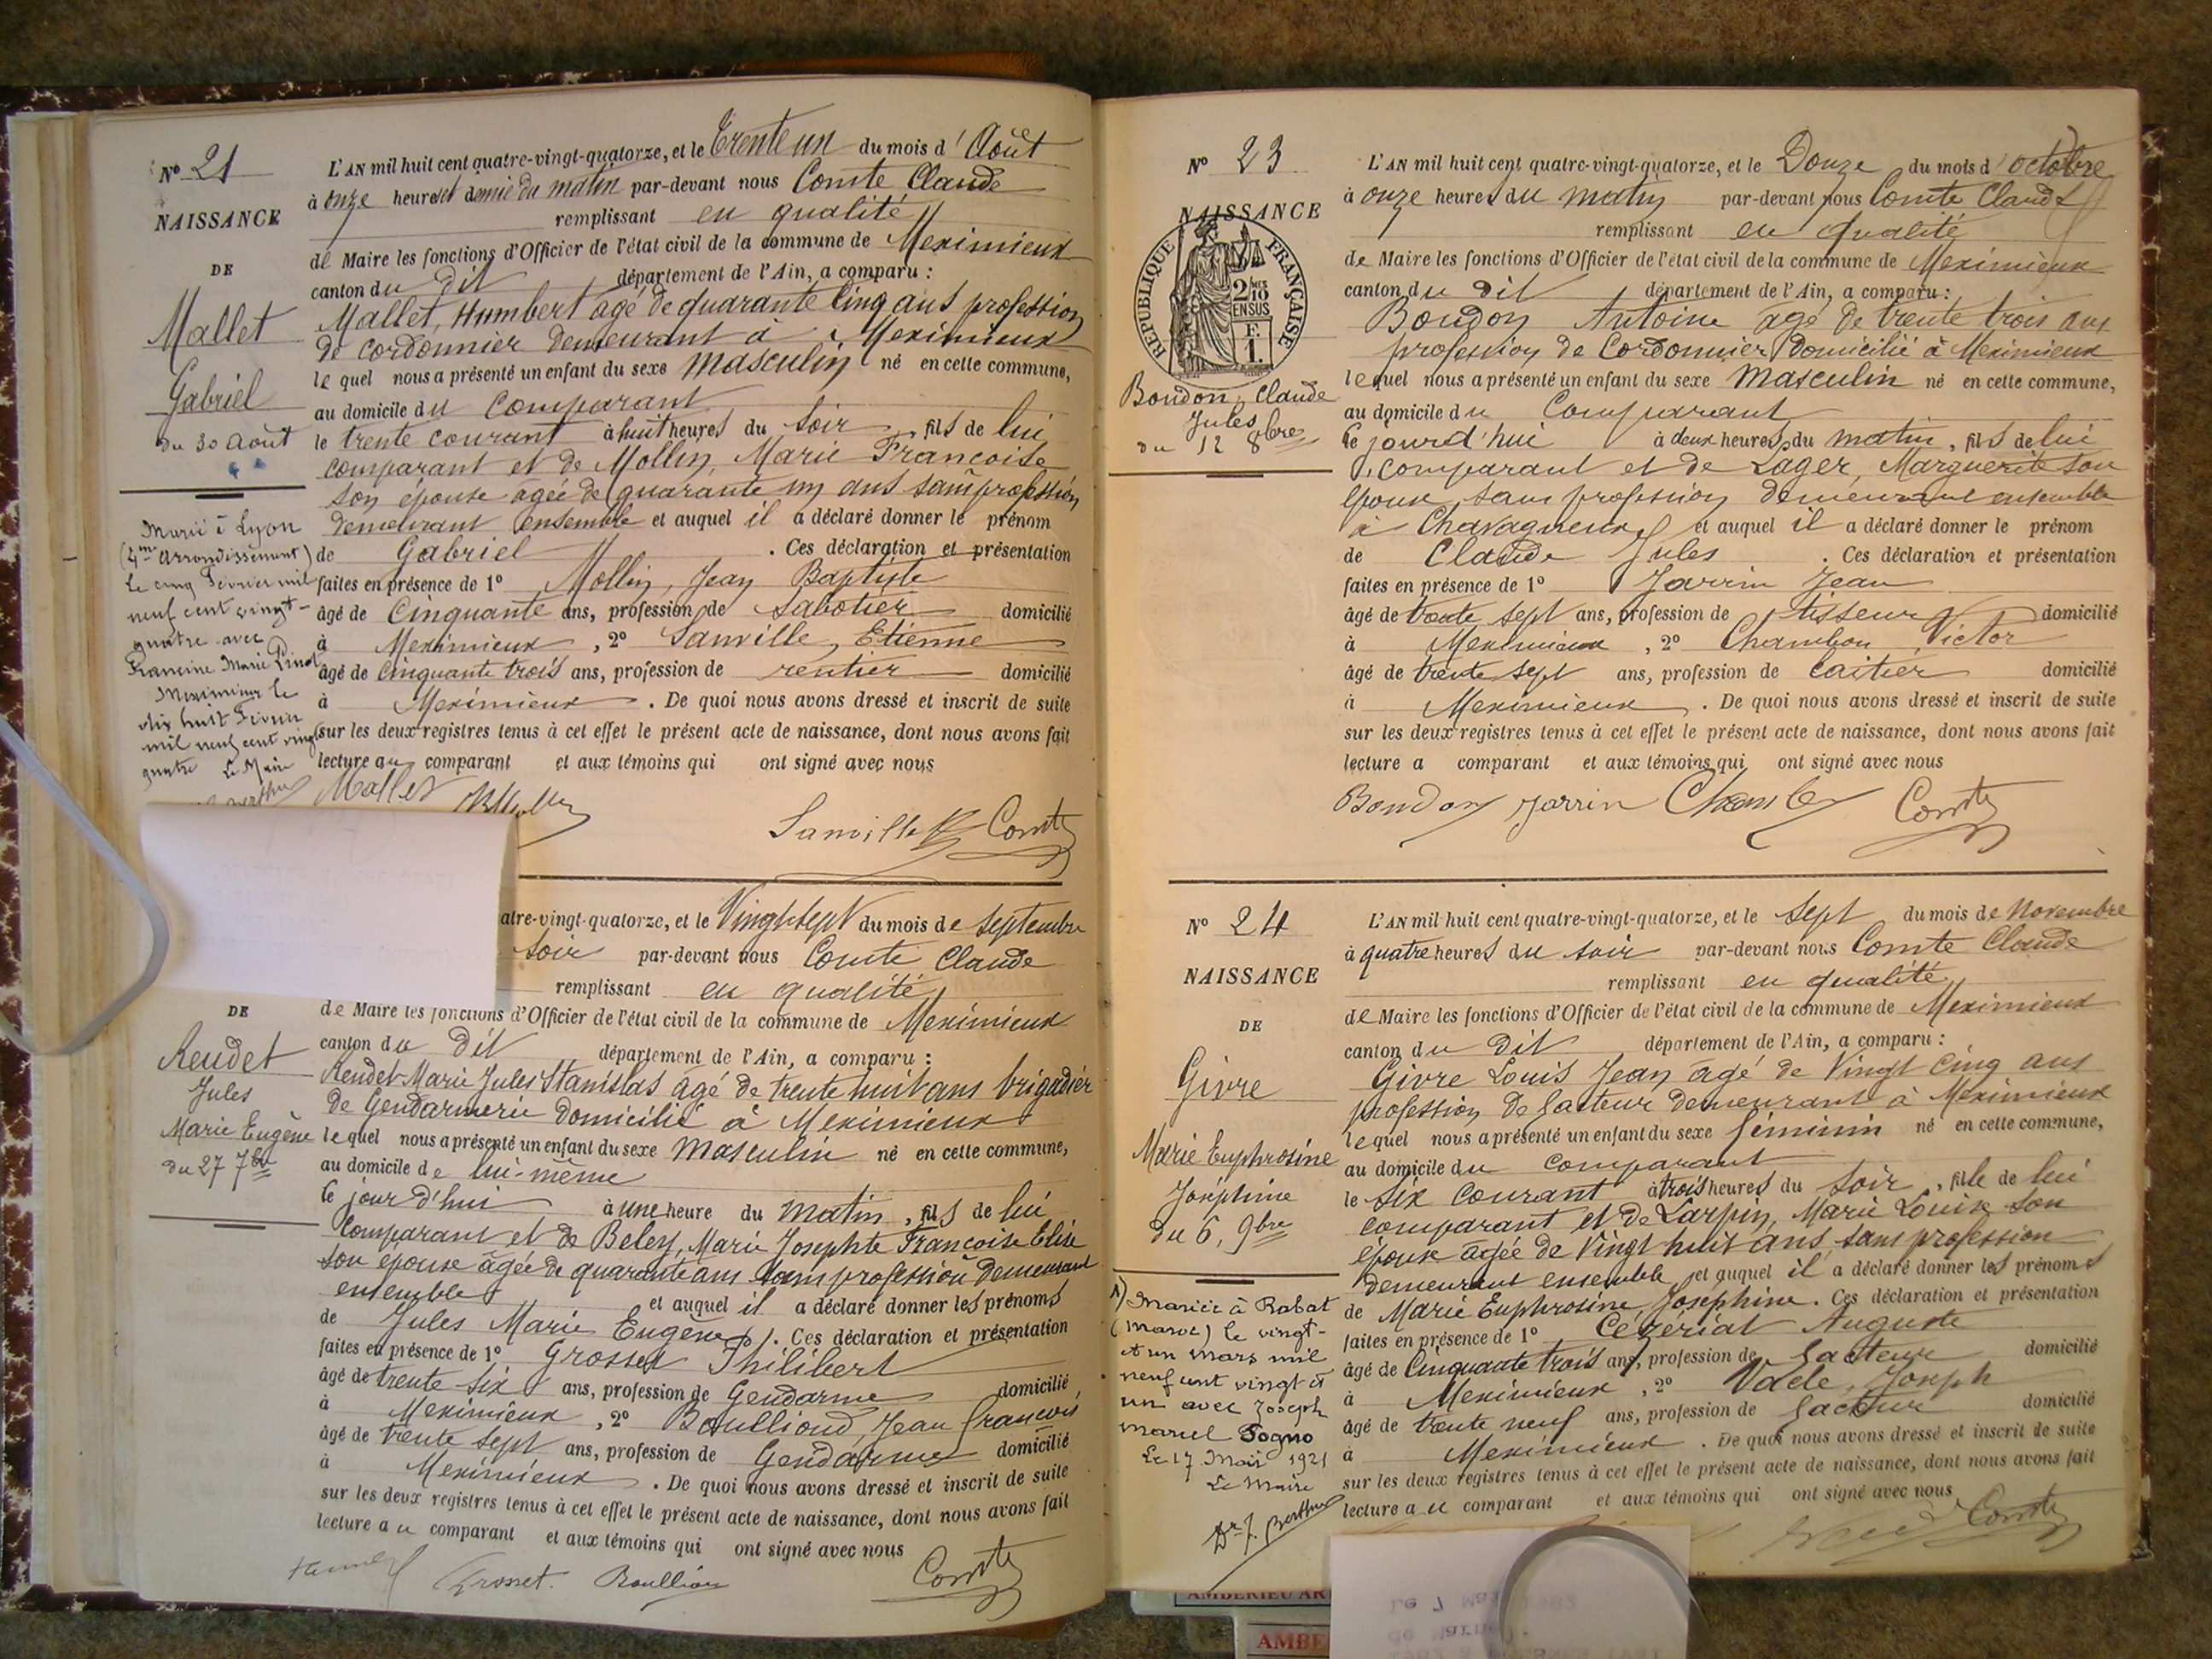 Nº 21
NAISSANCE
DE
Mallet
Gabriel
du 30 Août
Marié à Lyon
(4me Arrondissement)
le cinq Février mil
neuf cent vingt-
quatre avec
Francine Marie
Meximieux le
dix huit Février
mil neuf cent vingt
quatre Le Maire
L'AN mil huit cent quatre-vingt-quatorze, et le Trente un du mois d'Août
à onze heures et demie du matin par-devant nous Comte Claude
remplissant en qualité
de Maire les fonctions d'Officier de l'état civil de la commune de Meximieux
canton du dit département de l'Ain, a comparu :
Mallet, Humbert âgé de quarante cinq ans profession
de cordonnier demeurant à Meximieux
lequel nous a présenté un enfant du sexe masculin né en cette commune,
au domicile du comparant
le trente courant à huit heures du soir, fils de lui
comparant et de Mollin, Marie Françoise
son épouse âgée de quarante un ans sans profession
demeurant ensemble et auquel il a déclaré donner le prénom
de Gabriel. Ces déclaration et présentation
faites en présence de 1º Mollin, Jean Baptiste
âgé de Cinquante ans, profession de Sabotier domicilié
à Meximieux, 2º Sanville, Etienne
âgé de cinquante trois ans, profession de rentier domicilié
à Meximieux. De quoi nous avons dressé et inscrit de suite
sur les deux registres tenus à cet effet le présent acte de naissance, dont nous avons fait
lecture au comparant et aux témoins qui ont signé avec nous
Mallet
Sanville Comte
DE
Rendet
Jules
Marie Eugène
du 27 7bre
atre-vingt-quatorze, et le Vingt-sept du mois de Septembre
soir par-devant nous Comte Claude
remplissant en qualité
de Maire les fonctions d'Officier de l'état civil de la commune de Meximieux
canton du dit département de l'Ain, a comparu :
Rendet Marie Jules Stanislas âgé de trente huit ans brigadier
de Gendarmerie domicilié à Meximieux
lequel nous a présenté un enfant du sexe Masculin né en cette commune,
au domicile de lui-même
le jour d'hui à une heure du matin, fils de lui
comparant et de Beley, Marie Josephte Françoise Elise
son épouse âgée de quarante ans sans profession demeurant
ensemble et auquel il a déclaré donner les prénoms
de Jules Marie Eugène. Ces déclaration et présentation
faites en présence de 1º Grosset Philibert
âgé de trente six ans, profession de Gendarme domicilié
à Meximieux, 2º Boullioud, Jean François
âgé de trente sept ans, profession de Gendarme domicilié
à Meximieux. De quoi nous avons dressé et inscrit de suite
sur les deux registres tenus à cet effet le présent acte de naissance, dont nous avons fait
lecture au comparant et aux témoins qui ont signé avec nous
Grosset. Boulliou Comte
Nº 23
NAISSANCE
RÉPUBLIQUE FRANÇAISE
2/10 MES
EN SUS
F.
1.
Boudon, Claude
Jules
du 12 8bre
L'AN mil huit cent quatre-vingt-quatorze, et le Douze du mois d'octobre
à onze heures du matin par-devant nous Comte Claude
remplissant en qualité
de Maire les fonctions d'Officier de l'état civil de la commune de Meximieux
canton du dit département de l'Ain, a comparu :
Boudon Antoine âgé de trente trois ans
profession de Cordonnier domicilié à Meximieux
lequel nous a présenté un enfant du sexe Masculin né en cette commune,
au domicile du Comparant
le jourd'hui à deux heures du matin, fils de lui
comparant et de Lager, Marguerite son
épouse, sans profession demeurant ensemble
à Chavagneux et auquel il a déclaré donner le prénom
de Claude Jules. Ces déclaration et présentation
faites en présence de 1º Jarrin Jean
âgé de trente sept ans, profession de tisseur domicilié
à Meximieux, 2º Chambon Victor
âgé de trente sept ans, profession de domicilié
à Meximieux. De quoi nous avons dressé et inscrit de suite
sur les deux registres tenus à cet effet le présent acte de naissance, dont nous avons fait
lecture a comparant et aux témoins qui ont signé avec nous
Boudon Jarrin Comte
Nº 24
NAISSANCE
DE
Givre
Marie Euphrosine
Joséphine
du 6, 9bre
1) Mariée à Rabat
(Maroc) le vingt-
et un mars mil
neuf cent vingt et
un avec Joseph
Marcel Pogno
Le 17 Mai 1921
Le Maire
Dr J. Berthier
L'AN mil huit cent quatre-vingt-quatorze, et le Sept du mois de Novembre
à quatre heures du soir par-devant nous Comte Claude
remplissant en qualité
de Maire les fonctions d'Officier de l'état civil de la commune de Meximieux
canton du dit département de l'Ain, a comparu :
Givre Louis Jean âgé de Vingt cinq ans
profession de facteur demeurant à Meximieux
lequel nous a présenté un enfant du sexe féminin né en cette commune,
au domicile du comparant
le Six courant à trois heures du soir, fille de lui
comparant et de Larpin, Marie Louise son
épouse âgée de Vingt huit ans, sans profession
demeurant ensemble et auquel il a déclaré donner les prénoms
de Marie Euphrosine Josephine. Ces déclaration et présentation
faites en présence de 1º Cézeriat Auguste
âgé de Cinquante trois ans, profession de facteur domicilié
à Meximieux, 2º Joseph
âgé de trente neuf ans, profession de facteur domicilié
à Meximieux. De quoi nous avons dressé et inscrit de suite
sur les deux registres tenus à cet effet le présent acte de naissance, dont nous avons fait
lecture au comparant et aux témoins qui ont signé avec nous
Comte
AMBERIEU AR
AMBE